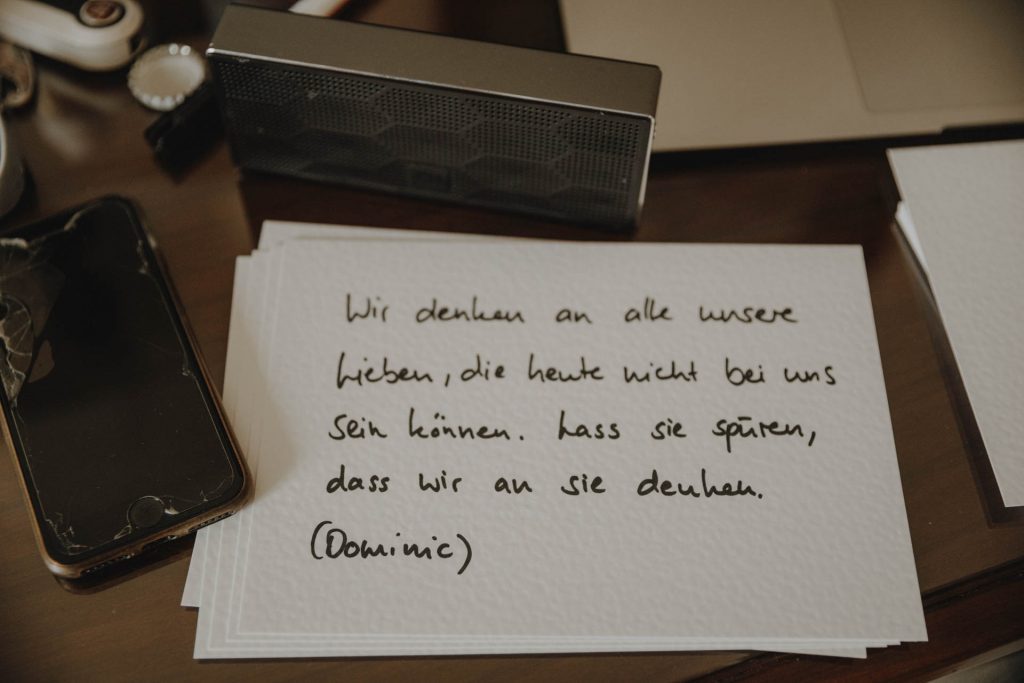 Wir denken an alle unsere
Lieben, die heute nicht bei uns
sein können. Lass sie spüren,
dass wir an sie denken.
(Dominic)